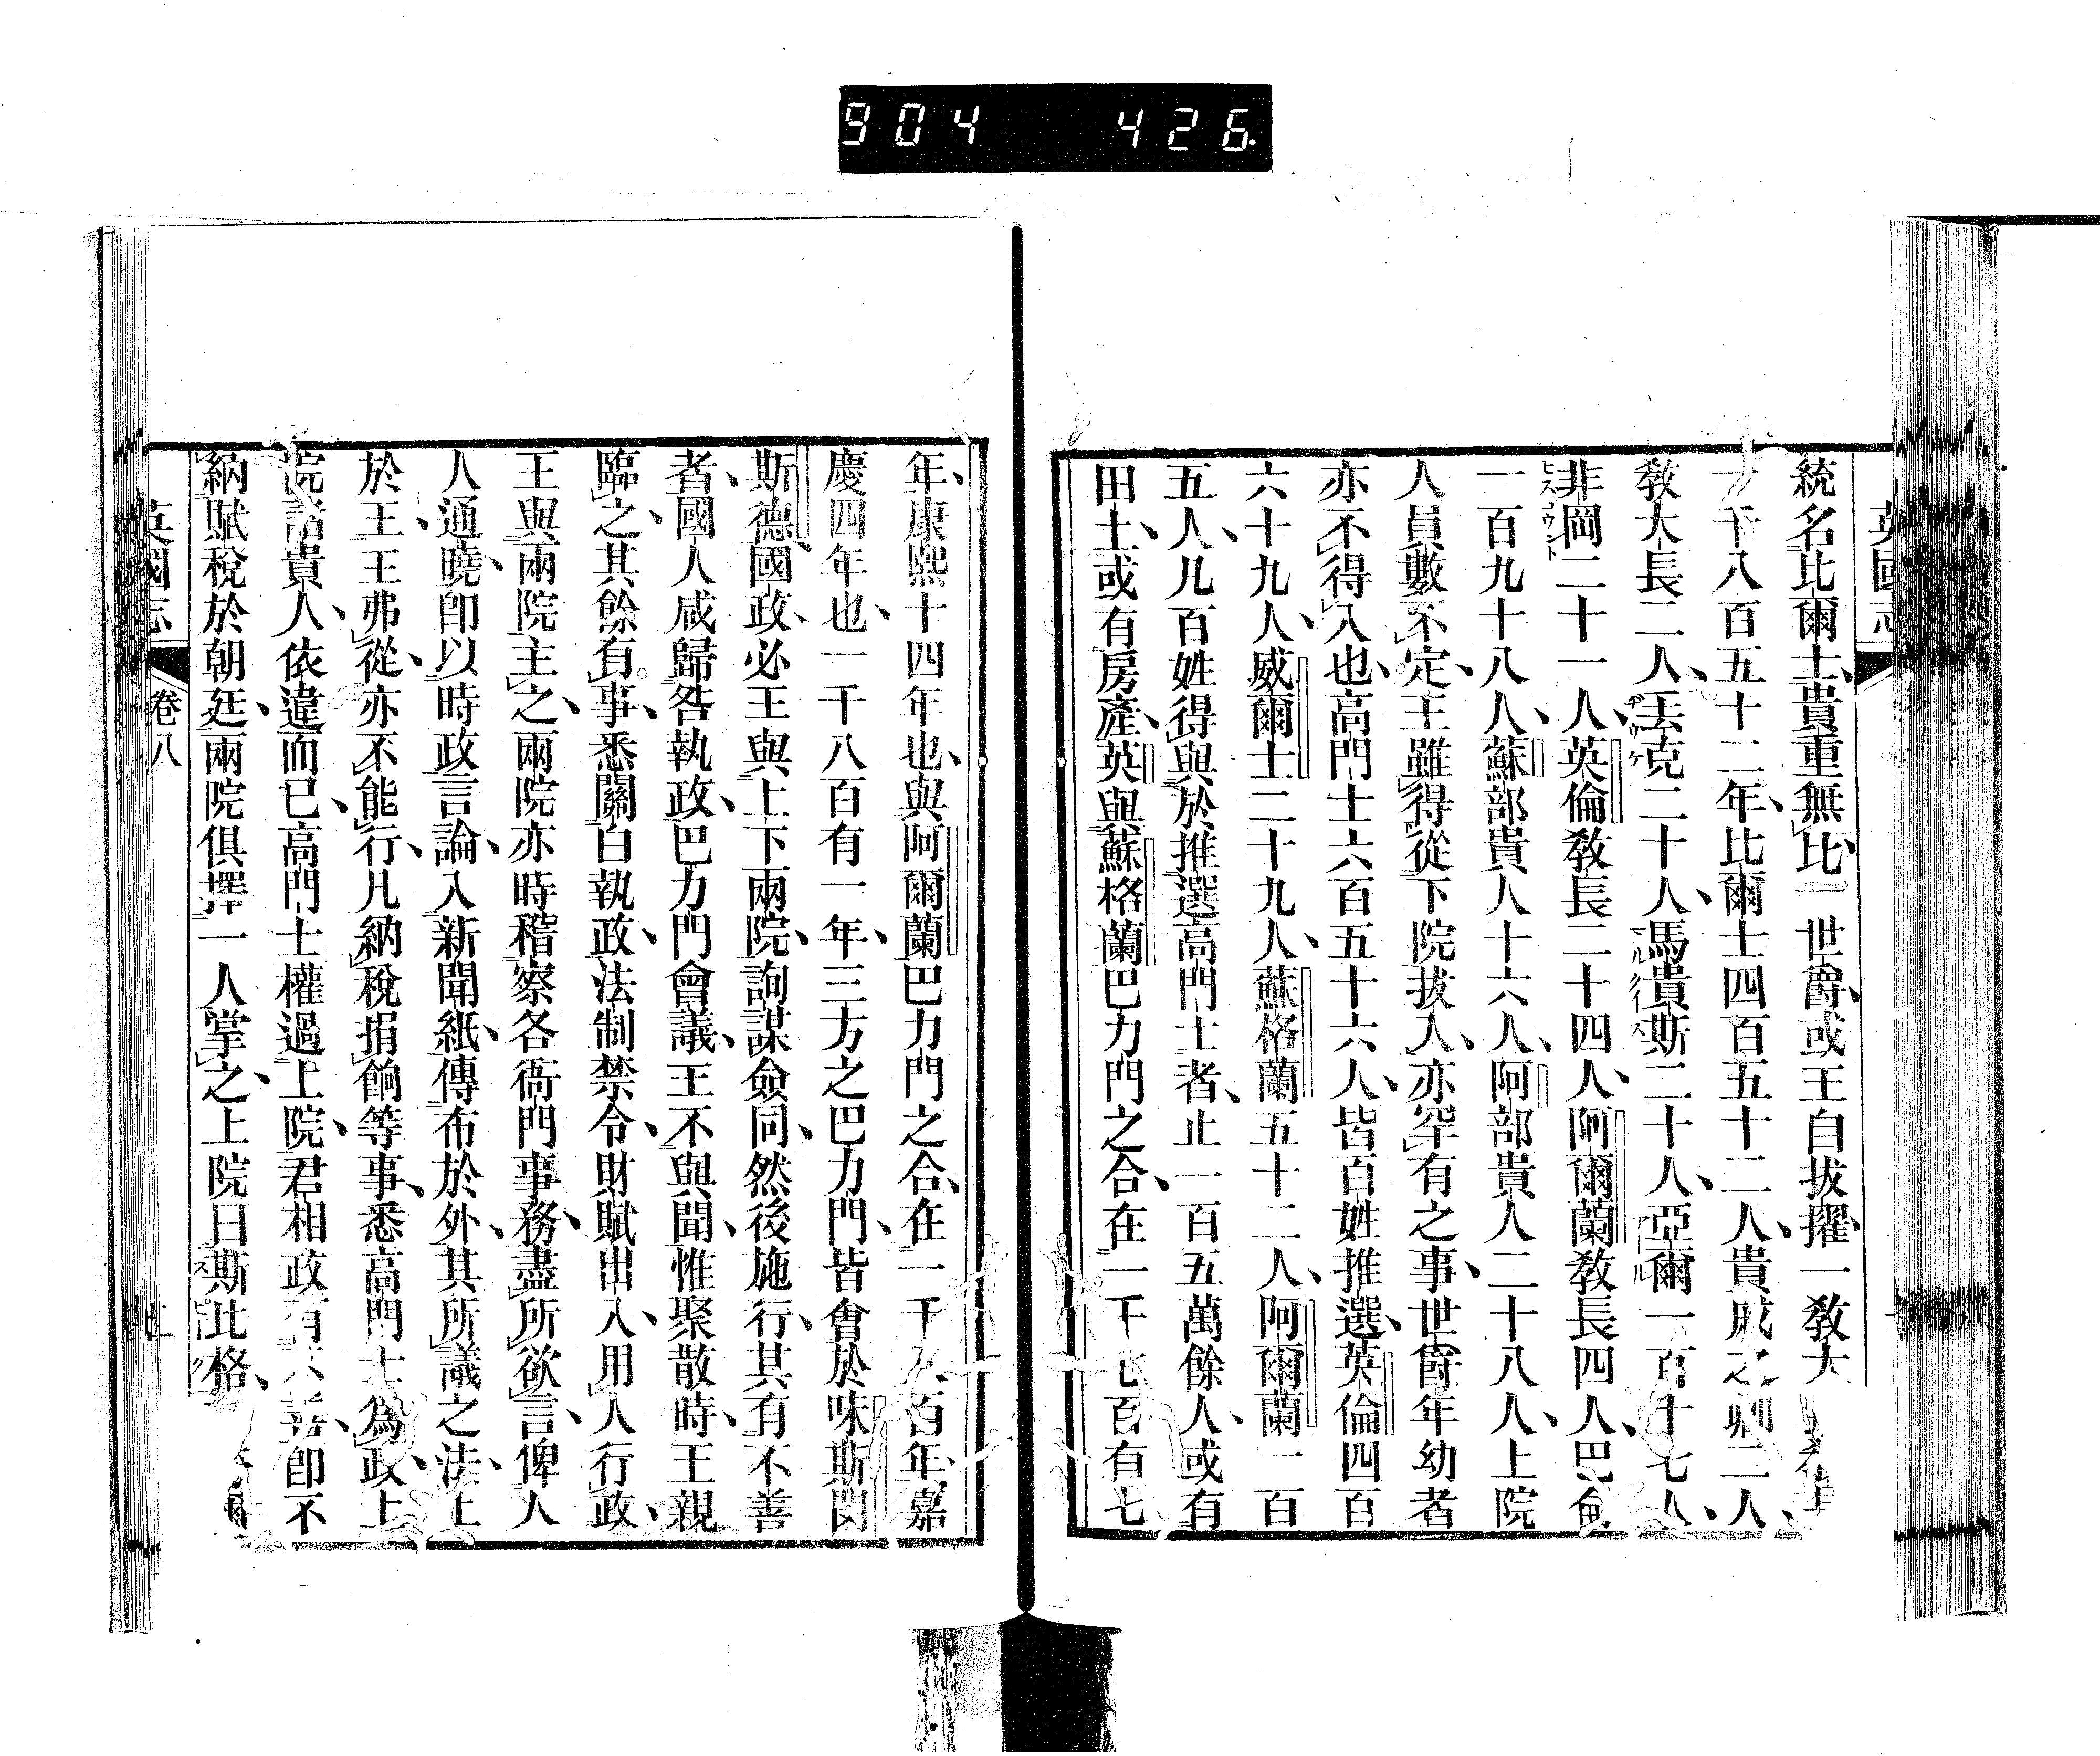 904 426
英國志
統名比爾士、貴重無比、一世爵、或王自拔擢、一敎大
千八百五十二年、比爾士四百五十二人、貴戚之卿二人、
敎大長二人、丟克二十人、馬貴斯二十人、亞爾一百十七人、
チウケ マルクイス アール
非岡二十一人、英倫敎長二十四人、阿爾蘭敎長四人、巴侖
ヒスコウント
一百九十八人、蘇部貴人十六人、阿部貴人二十八人、上院
人員數不定、王雖得從下院拔人、亦罕有之事、世爵年幼者
亦不得入也、高門士六百五十六人、皆百姓推選、英倫四百
六十九人、威爾士二十九人、蘇格蘭五十二人、阿爾蘭一百
五人、凡百姓得與於推選高門士者、止一百五萬餘人、或有
田土、或有房產、英與蘇格蘭巴力門之合、在一千七百有七
年、康熙十四年也、與阿爾蘭巴力門之合、在一千八百年、嘉
慶四年也、一千八百有一年、三方之巴力門、皆會於味斯閔
斯德、國政、必王與上下兩院、詢謀僉同、然後施行、其有不善
者、國人咸歸咎執政、巴力門會議、王不與聞、惟聚散時、王親
臨之、其餘有事、悉關白執政、法制禁令、財賦出入、用人行政、
王與兩院主之、兩院亦時稽察各衙門事務、盡所欲言、俾人
人通曉、卽以時政言論、入新聞紙、傳布於外、其所議之法、上
於王、王弗從、亦不能行、凡納稅捐餉等事、悉高門士爲政、上
院諸貴人、依違而已、高門士權過上院、君相政有不善、卽不
納賦稅於朝廷、兩院俱擇一人掌之、上院曰斯比格、
スピーク
英國志 卷八